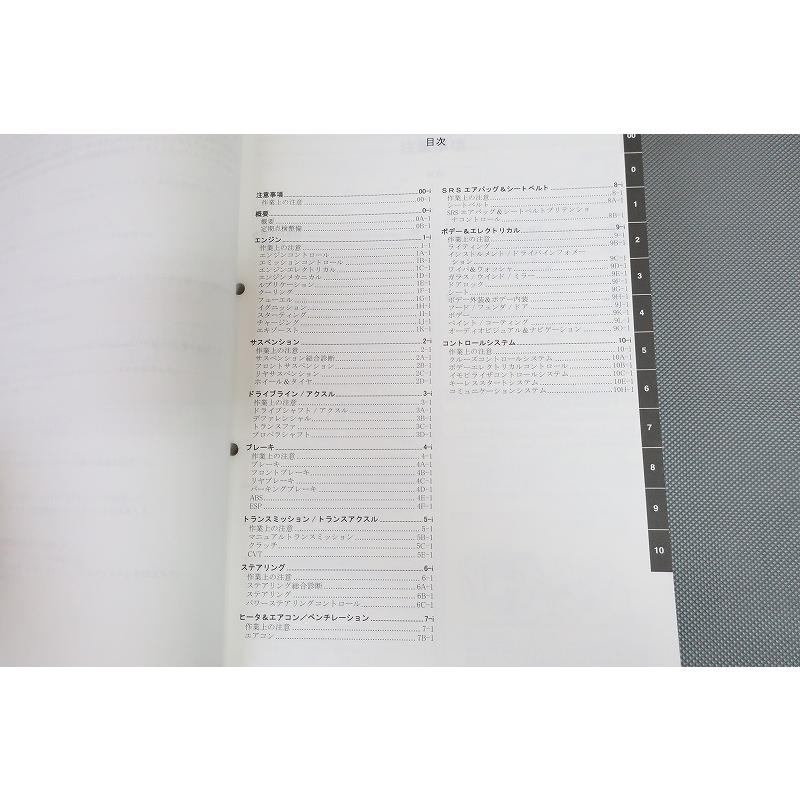 目次
注意事項 00-i
作業上の注意 00-1
概要 0-i
概要 0A-1
定期点検整備 0B-1
エンジン 1-i
作業上の注意 1-1
エンジンコントロール 1A-1
エミッションコントロール 1B-1
エンジンエレクトリカル 1C-1
エンジンメカニカル 1D-1
ルブリケーション 1E-1
クーリング 1F-1
フューエル 1G-1
イグニッション 1H-1
スターティング 1I-1
チャージング 1J-1
エキゾースト 1K-1
サスペンション 2-i
作業上の注意 2-1
サスペンション総合診断 2A-1
フロントサスペンション 2B-1
リヤサスペンション 2C-1
ホイール&タイヤ 2D-1
ドライブライン/アクスル 3-i
作業上の注意 3-1
ドライブシャフト/アクスル 3A-1
デファレンシャル 3B-1
トランスファ 3C-1
プロペラシャフト 3D-1
ブレーキ 4-i
作業上の注意 4-1
ブレーキ 4A-1
フロントブレーキ 4B-1
リヤブレーキ 4C-1
パーキングブレーキ 4D-1
ABS 4E-1
ESP 4F-1
トランスミッション/トランスアクスル 5-i
作業上の注意 5-1
マニュアルトランスミッション 5B-1
クラッチ 5C-1
CVT 5E-1
ステアリング 6-i
作業上の注意 6-1
ステアリング総合診断 6A-1
ステアリング 6B-1
パワーステアリングコントロール 6C-1
ヒータ&エアコン/ベンチレーション 7-i
作業上の注意 7-1
エアコン 7B-1
SRSエアバッグ&シートベルト 8-i
作業上の注意 8-1
シートベルト 8A-1
SRSエアバッグ&シートベルトプリテンショ
ナコントロール 8B-1
ボデー&エレクトリカル 9-i
作業上の注意 9-1
ライティング 9B-1
インストルメント/ドライバインフォメー
ション 9C-1
ワイパ&ウォッシャ 9D-1
ガラス/ウインド/ミラー 9E-1
ドアロック 9F-1
シート 9G-1
ボデー外装&ボデー内装 9H-1
フード/フェンダ/ドア 9J-1
ボデー 9K-1
ペイント/コーティング 9L-1
オーディオビジュアル&ナビゲーション 9O-1
コントロールシステム 10-i
作業上の注意 10-1
クルーズコントロールシステム 10A-1
ボデーエレクトリカルコントロール 10B-1
イモビライザコントロールシステム 10C-1
キーレススタートシステム 10E-1
コミュニケーションシステム 10H-1
00
0
1
2
3
4
5
6
7
8
9
10